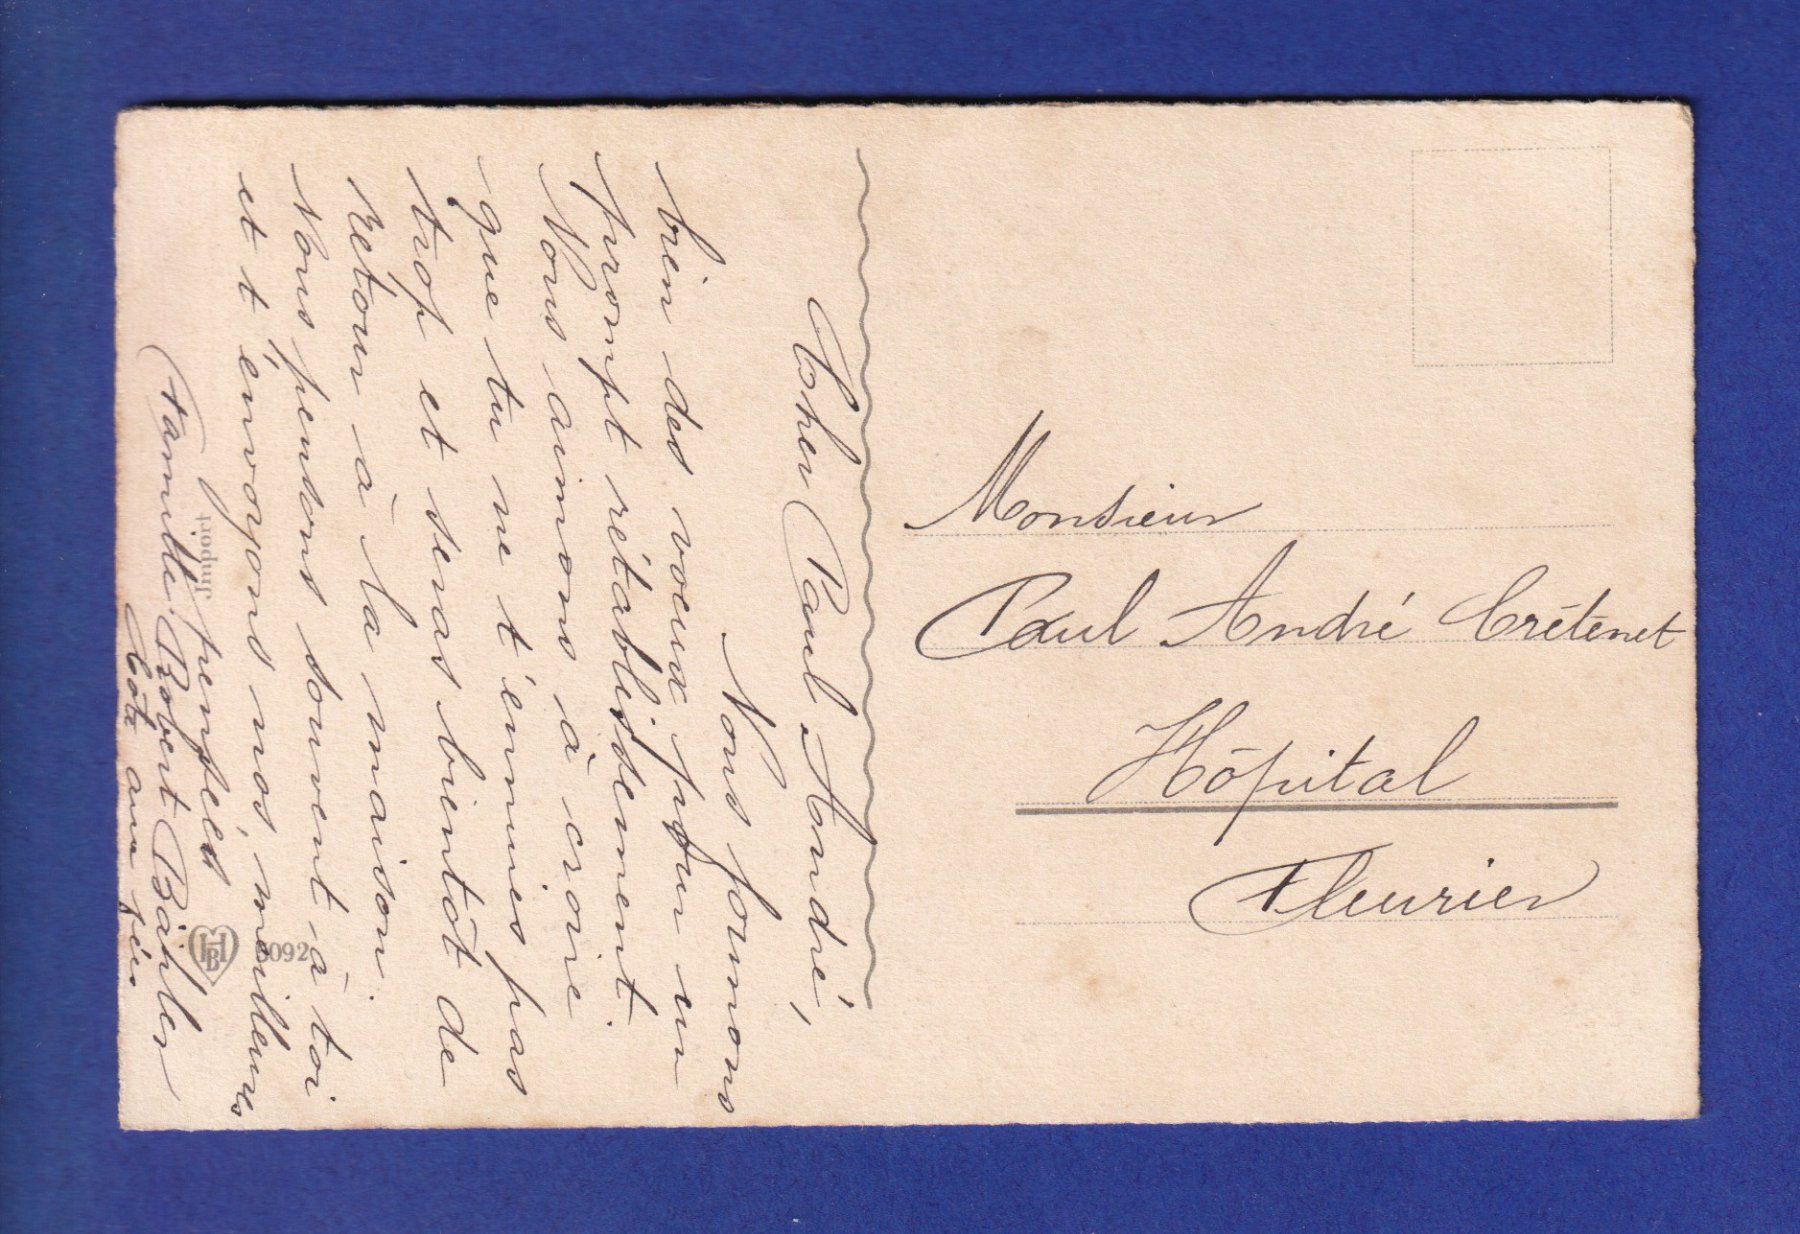 Cher Paul André,
Nous formons
bien des voeux pour un
prompt rétablissement.
Nous aimons à croire
que tu ne t'ennuies pas
trop et seras bientôt de
retour à la maison.
Nous pensons souvent à toi
et t'envoyons nos meilleures
pensées
Famille Robert Bähler
Import
HB
092
Monsieur
Paul André Crétenet
Hôpital
Fleurier